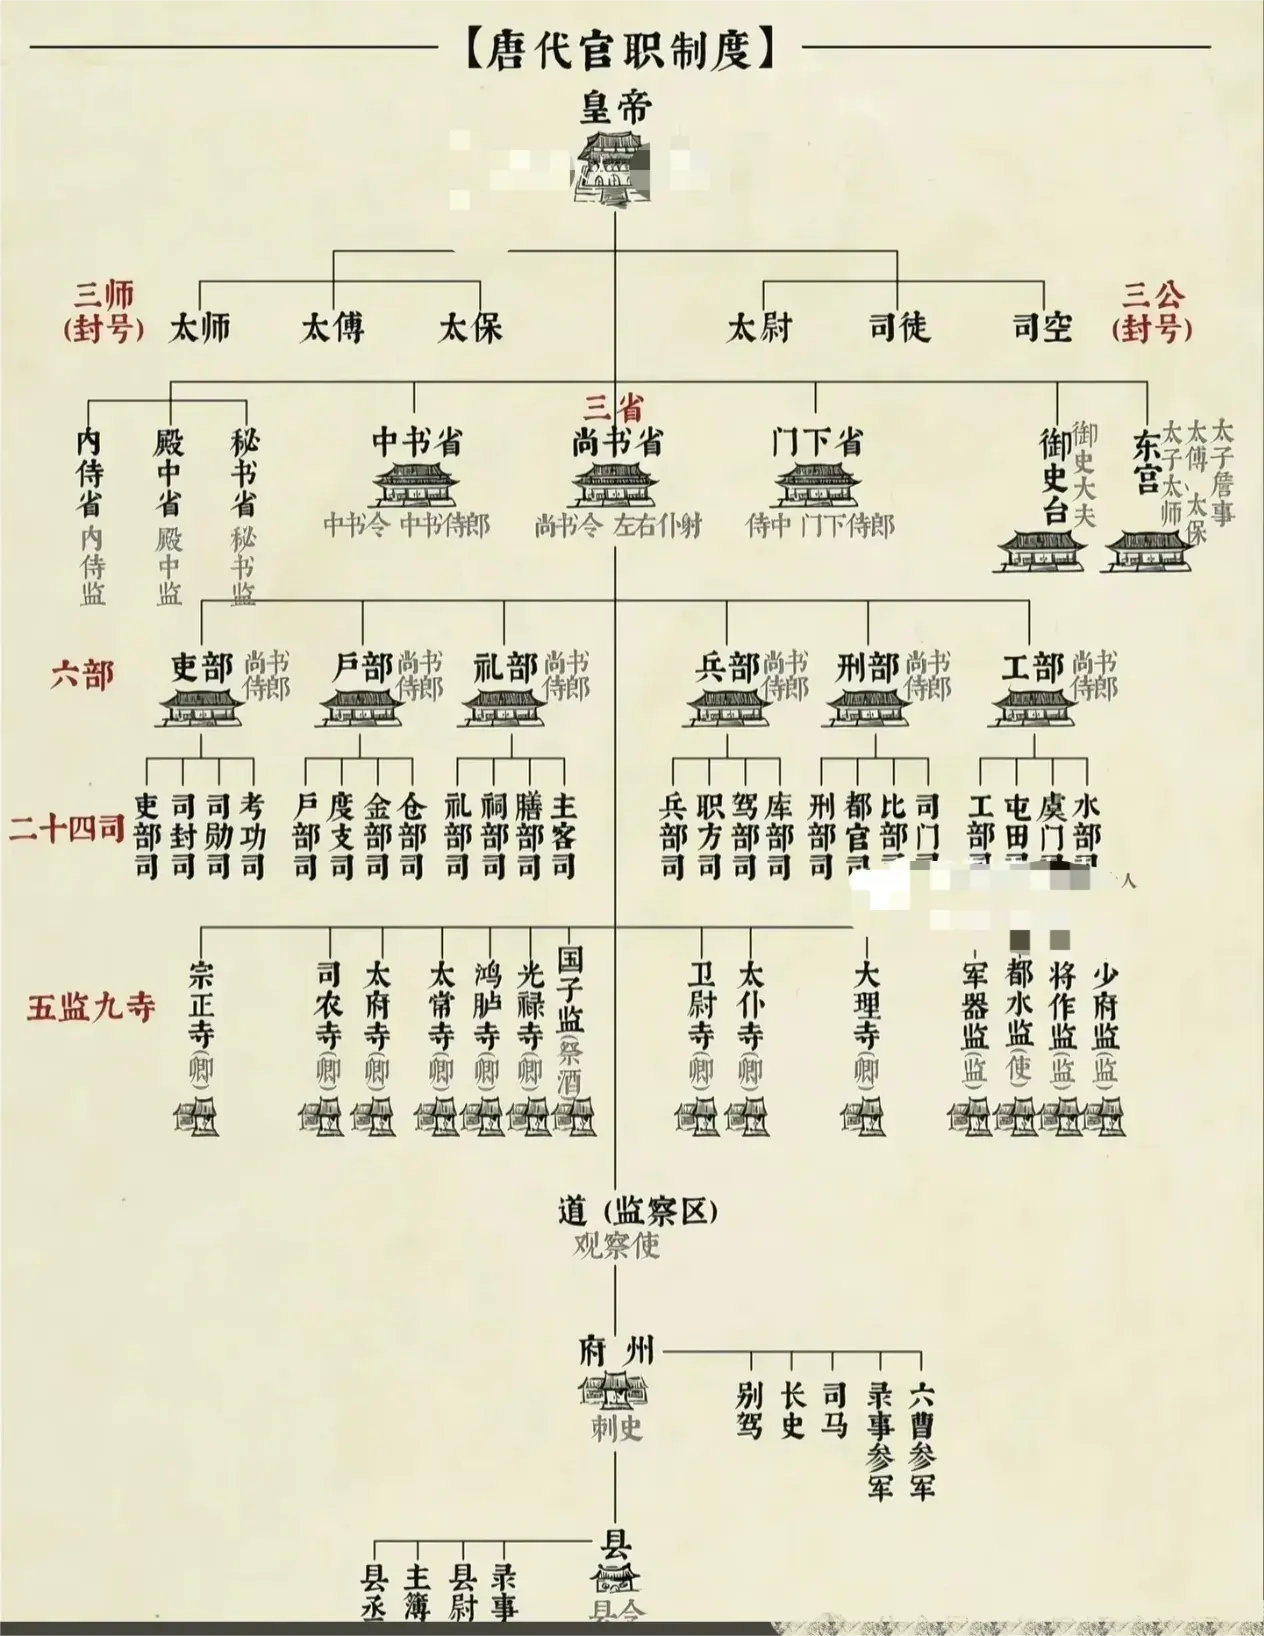 【唐代官职制度】
皇帝
三师
(封号)
太师
太傅
太保
太尉
司徒
司空
三公
(封号)
三省
内侍省
内侍监
殿中省
殿中监
秘书省
秘书监
中书省
中书令 中书侍郎
尚书省
尚书令 左右仆射
门下省
侍中 门下侍郎
御史台
御史大夫
东宫
太子太师
太傅、太保
太子詹事
六部
吏部
尚书
侍郎
户部
尚书
侍郎
礼部
尚书
侍郎
兵部
尚书
侍郎
刑部
尚书
侍郎
工部
尚书
侍郎
二十四司
吏部司
司封司
司勋司
考功司
户部司
度支司
金部司
仓部司
礼部司
祠部司
膳部司
主客司
兵部司
职方司
驾部司
库部司
刑部司
都官司
比部司
司门司
工部司
屯田司
虞门司
水部司
人
五监九寺
宗正寺(卿)
司农寺(卿)
太府寺(卿)
太常寺(卿)
鸿胪寺(卿)
光禄寺(卿)
国子监(祭酒)
卫尉寺(卿)
太仆寺(卿)
大理寺(卿)
军器监(监)
都水监(使)
将作监(监)
少府监(监)
道 (监察区)
观察使
府 州
刺史
别驾
长史
司马
录事参军
六曹参军
县
县令
县丞
主簿
县尉
录事